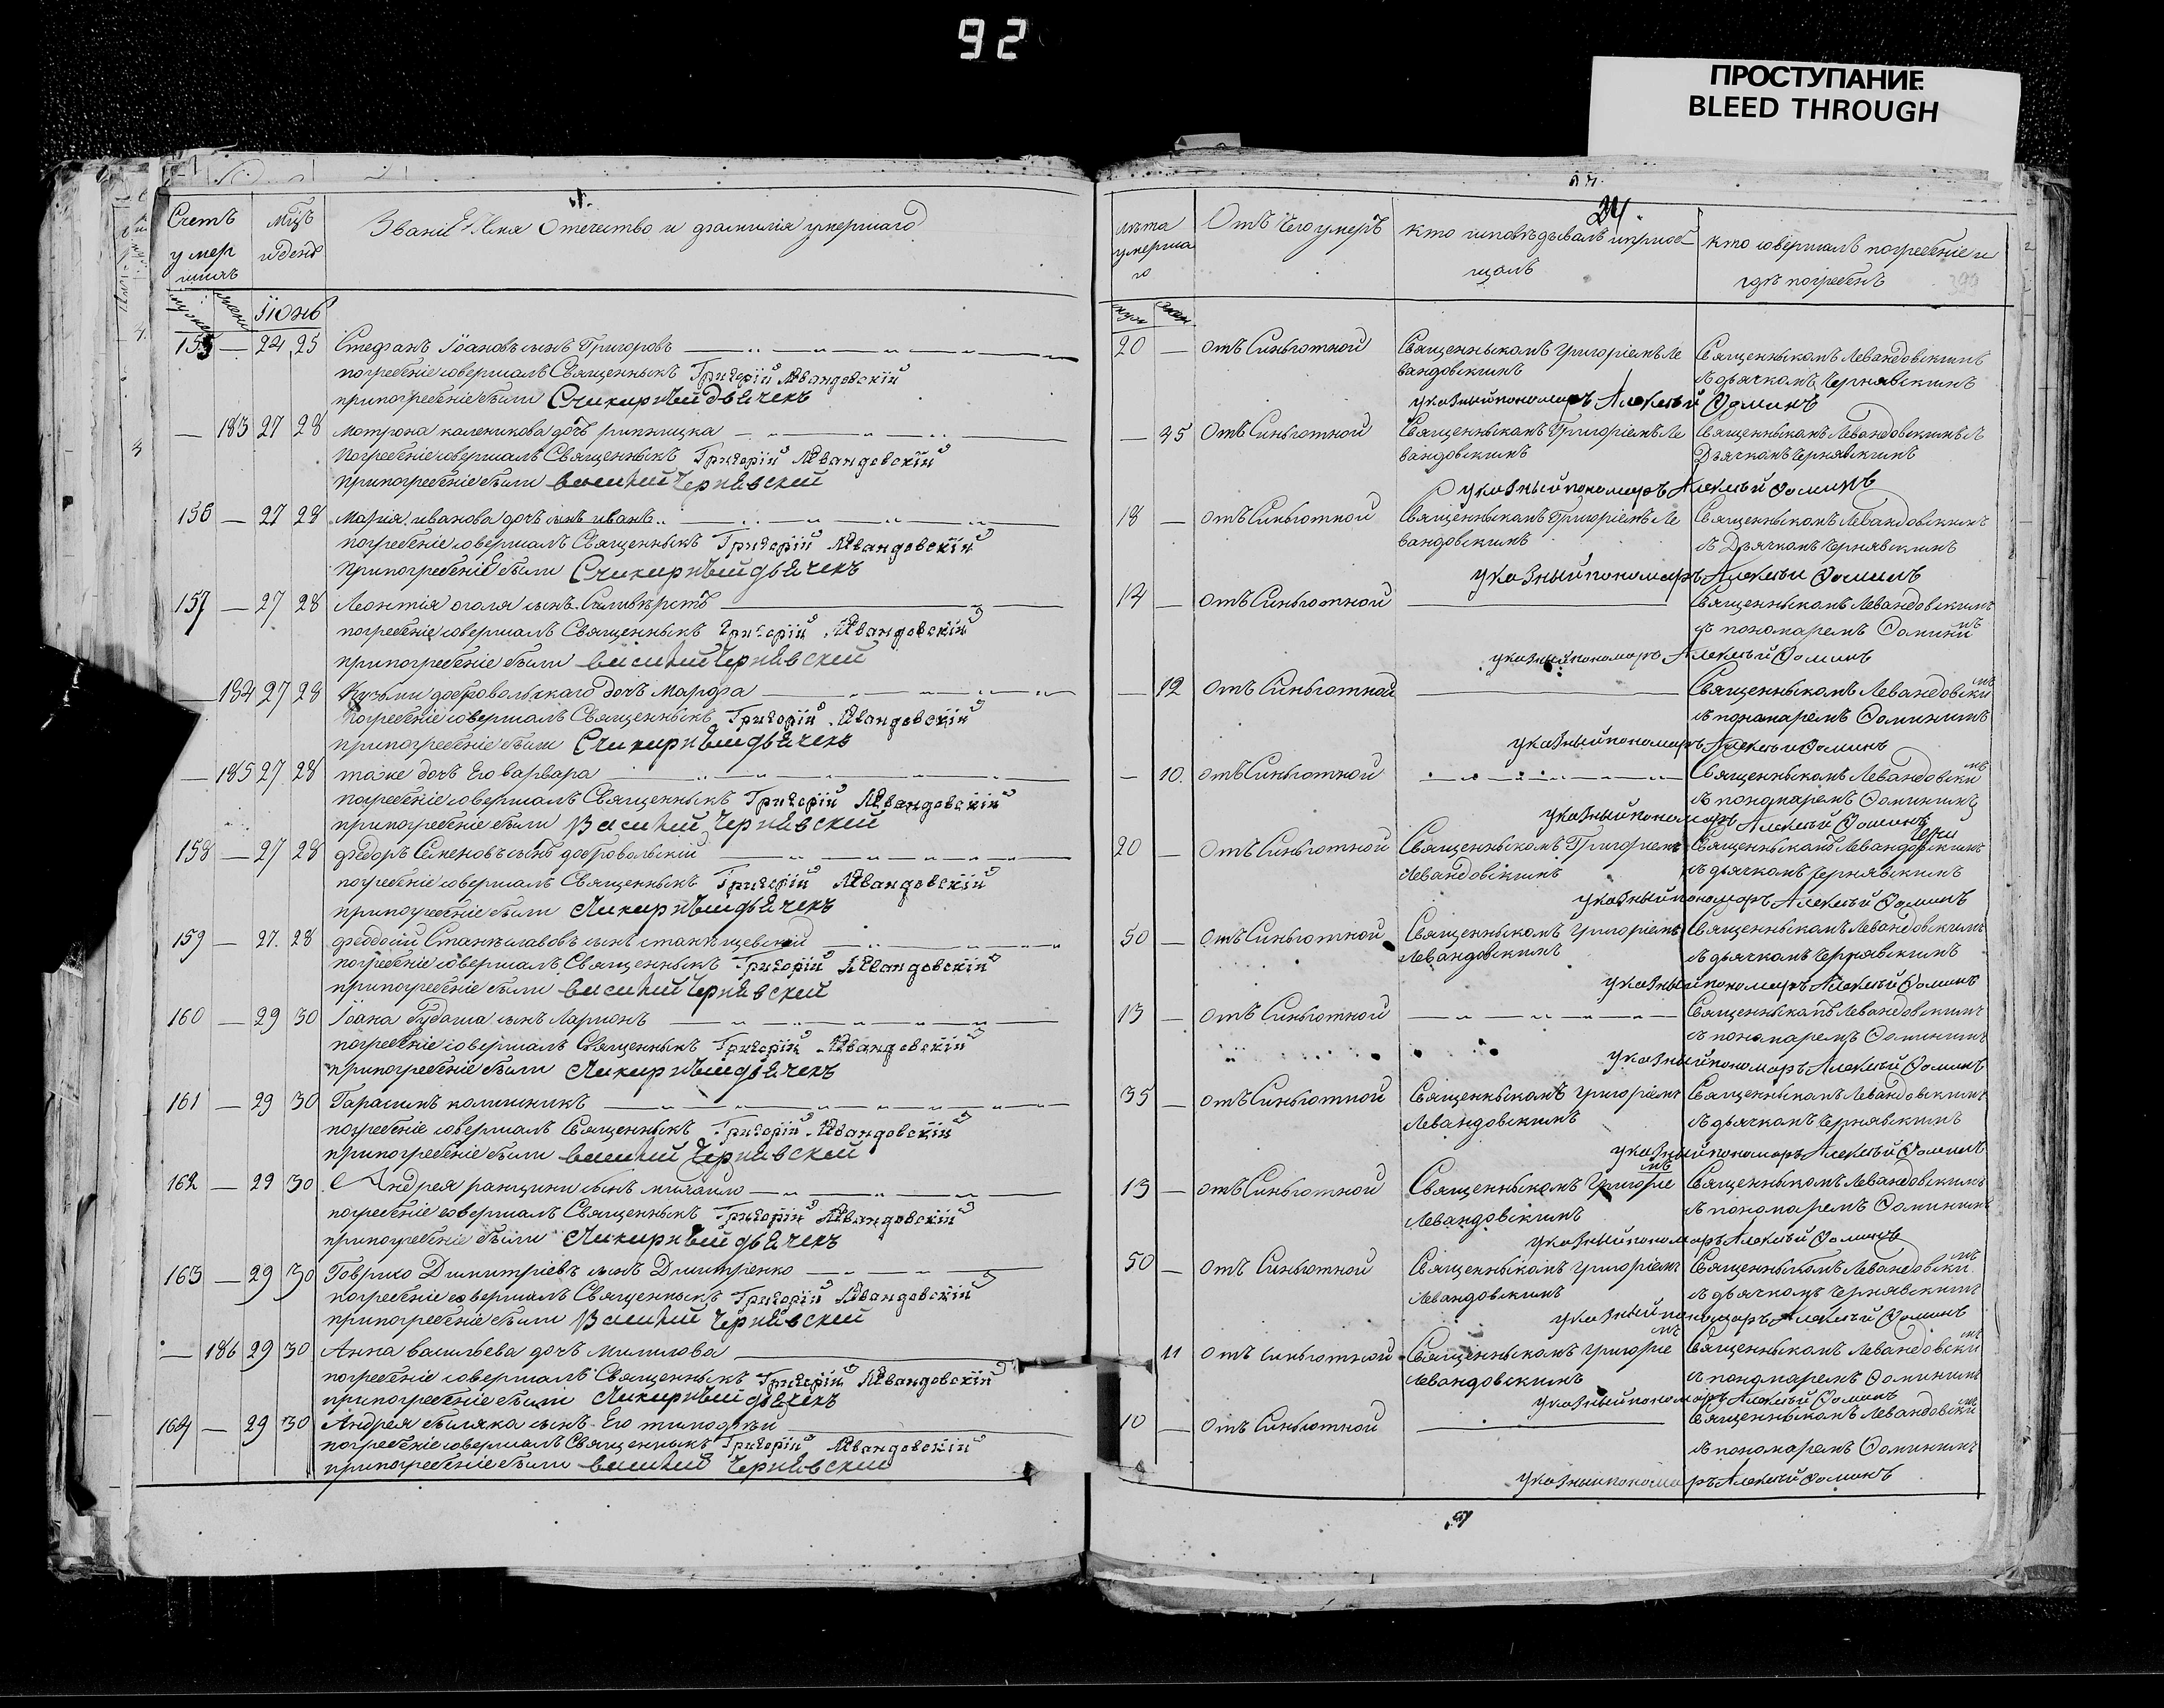 92
ПРОСТУПАНИЕ
BLEED THROUGH
24.
Счетъ умер шихъ
Мцъ и день
Званiе Имя Отечество и фамилiя умершаго
лѣта умерша го
Отъ Чего умеръ
кто исповѣдывалъ и прiоб щалъ
кто совершалъ погребенiе и гдѣ погребенъ
Iюнь
155 — 24 25 Стефанъ Iоановъ сынъ Григоровъ
погребенiе совершалъ Священныкъ Григорiй Левандовскiй
припогребенiе были
— 183 27 28 Мотрона каленикова дочъ
Погребенiе совершалъ Священныкъ Григорiй Левандовскiй
Припогребенiе были василий Чернявский
156 — 27 28 Марiя иванова дочъ сынъ иванъ
погребенiе совершалъ Священныкъ Григорiй Левандовскiй
Припогребенiе были
157 — 27 28 Леонтiя оголя сынъ Силивѣрстъ
погребенiе совершалъ Священныкъ Григорiй Левандовскiй
припогребенiе были василий Чернявский
184 27 28 Кузьмы добровольскаго дочъ Марфа
Погребенiе совершалъ Священныкъ Григорiй Левандовскiй
припогребенiе были
— 185 27 28 такъже дочъ Его варвара
погребенiе совершалъ Священныкъ Григорiй Левандовскiй
припогребенiе были Василий Чернявский
158 — 27 28 федоръ Семеновъ сынъ добровольскiй
погребенiе совершалъ Священныкъ Григорiй Левандовскiй
припогребенiе были
159 — 27. 28 феодосiй Станѣславовъ сынъ станѣщевскiй
погребенiе совершалъ Священныкъ Григорiй Левандовскiй
припогребенiе были василий Чернявский
160 — 29 30 Iоана Гудаша сынъ Ларионъ
погребенiе совершалъ Священныкъ Григорiй Левандовскiй
припогребенiе были
161 — 29 30 Гарасимъ калишникъ
погребенiе совершалъ Священныкъ Григорiй Левандовскiй
припогребенiе были василий Чернявский
162 — 29 30 Андрея ранщини сынъ михаило
погребенiе совершалъ Священныкъ Григорiй Левандовскiй
припогребенiе были
163 — 29 30 Гаврило Димитрiевъ сынъ Димитренко
погребенiе совершалъ Священныкъ Григорiй Левандовскiй
припогребенiе были Василий Чернявский
— 186 29 30 Анна васильева дочъ
погребенiе совершалъ Священныкъ Григорiй Левандовскiй
припогребенiе были
164 — 29 30 Андрея биляка сынъ Его тимофѣй
погребенiе совершалъ Священныкъ Григорiй Левандовскiй
припогребенiе были василий Чернявский
20 — отъ Синьготной Священныкомъ Григорiемъ Ле Священныкомъ Левандовскимъ
вандовскимъ съ дьячкомъ Чернявскимъ
указный пономарь Алексѣй Фоминъ
— 35 Отъ Синьготной Священныкомъ Григорiемъ Ле Священныкомъ Левандовскимъ съ
вандовскимъ Дьячкомъ Чернявскимъ
указный пономарь Алексѣй Фоминъ
18 — отъ Синьготной Священныкомъ Григорiемъ Ле Священныкомъ Левандовскимъ
вандовскимъ съ Дьячкомъ Чернявскимъ
указный пономарь Алексѣй Фоминъ
14 — отъ Синьготной Священныкомъ Левандовскимъ
съ пономаремъ Фоминимъ
указный пономарь Алексѣй Фоминъ
— 12 отъ Синьготной Священныкомъ Левандовскимъ
съ пономаремъ Фоминимъ
указный пономарь Алексѣй Фоминъ
— 10. отъ Синьготной Священныкомъ Левандовскимъ
съ пономаремъ Фоминимъ
указный пономарь Алексѣй Фоминъ
20 — Отъ Синьготной Священныкомъ Григорiемъ Священныкомъ Левандовскимъ
Левандовскимъ съ дьячкомъ Чернявскимъ
указный пономарь Алексѣй Фоминъ
50 — отъ Синьготной Священныкомъ Григорiемъ Священныкомъ Левандовскимъ
Левандовскимъ съ дьячкомъ Чернявскимъ
указный пономарь Алексѣй Фоминъ
13 — отъ Синьготной Священныкомъ Левандовскимъ
съ пономаремъ Фоминимъ
указный пономарь Алексѣй Фоминъ
35 — отъ Синьготной Священныкомъ Григорiемъ Священныкомъ Левандовскимъ
Левандовскимъ съ дьячкомъ Чернявскимъ
указный пономарь Алексѣй Фоминъ
13 — отъ Синьготной Священныкомъ Григорiемъ Священныкомъ Левандовскимъ
Левандовскимъ съ пономаремъ Фоминимъ
указный пономарь Алексѣй Фоминъ
50 — отъ Синьготной Священныкомъ Григорiемъ Священныкомъ Левандовскимъ
Левандовскимъ съ дьячкомъ Чернявскимъ
указный пономарь Алексѣй Фоминъ
11 отъ Синьготной Священныкомъ Григорiемъ Священныкомъ Левандовскимъ
Левандовскимъ съ пономаремъ Фоминимъ
указный пономарь Алексѣй Фоминъ
10 — отъ Синьготной Священныкомъ Левандовскимъ
съ пономаремъ Фоминимъ
указный пономарь Алексѣй Фоминъ